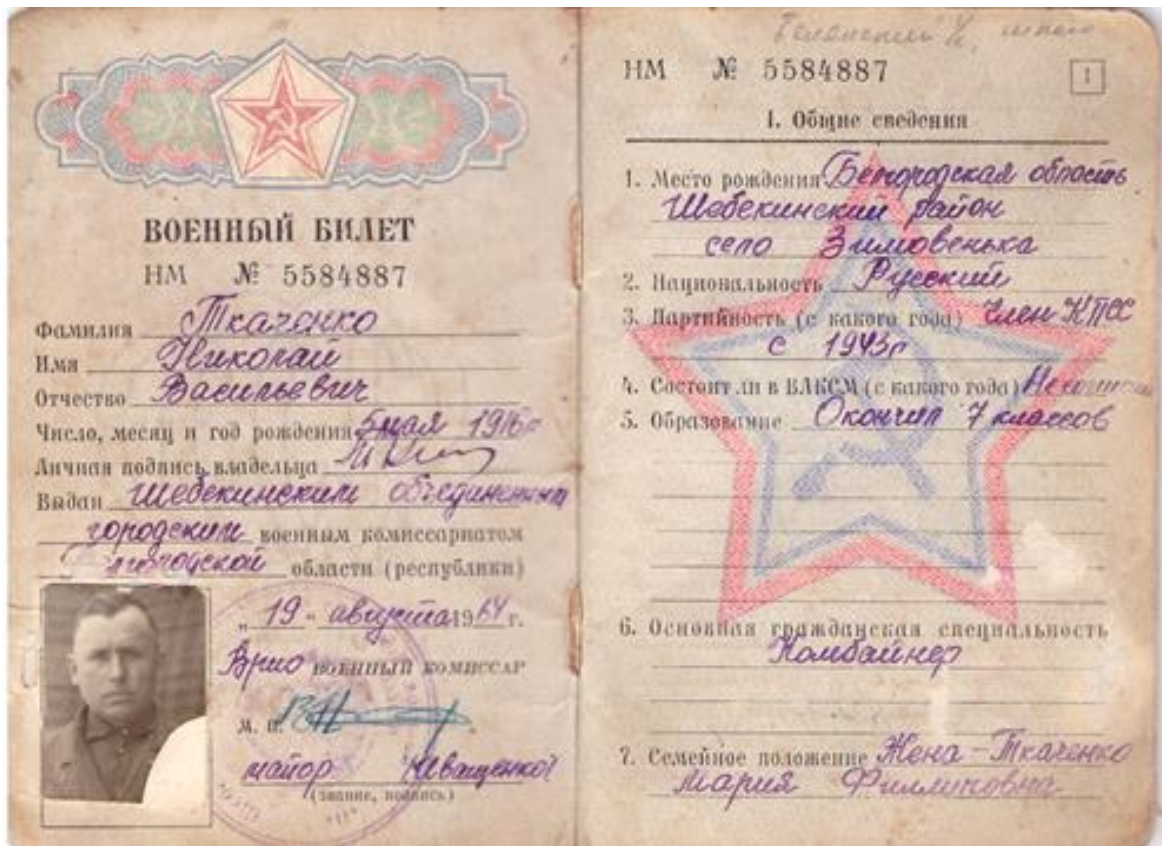 ВОЕННЫЙ БИЛЕТ
НМ № 5584887
Фамилия Ткаченко
Имя Николай
Отчество Васильевич
Число, месяц и год рождения 5 мая 1916г
Личная подпись владельца
Выдан Шебекинским объединенным
городским военным комиссариатом
области (республики)
„19“ августа 1964 г.
Врио военный комиссар
М. П.
майор
(звание, подпись)
НМ № 5584887
1
1. Общие сведения
1. Место рождения Белгородская область
Шебекинский район
село Зимовенька
2. Национальность Русский
3. Партийность (с какого года) Член КПСС
с 1943г
4. Состоит ли в ВЛКСМ (с какого года)
5. Образование Окончил 7 классов
6. Основная гражданская специальность
Комбайнер
7. Семейное положение Жена - Ткаченко
Мария Филипповна